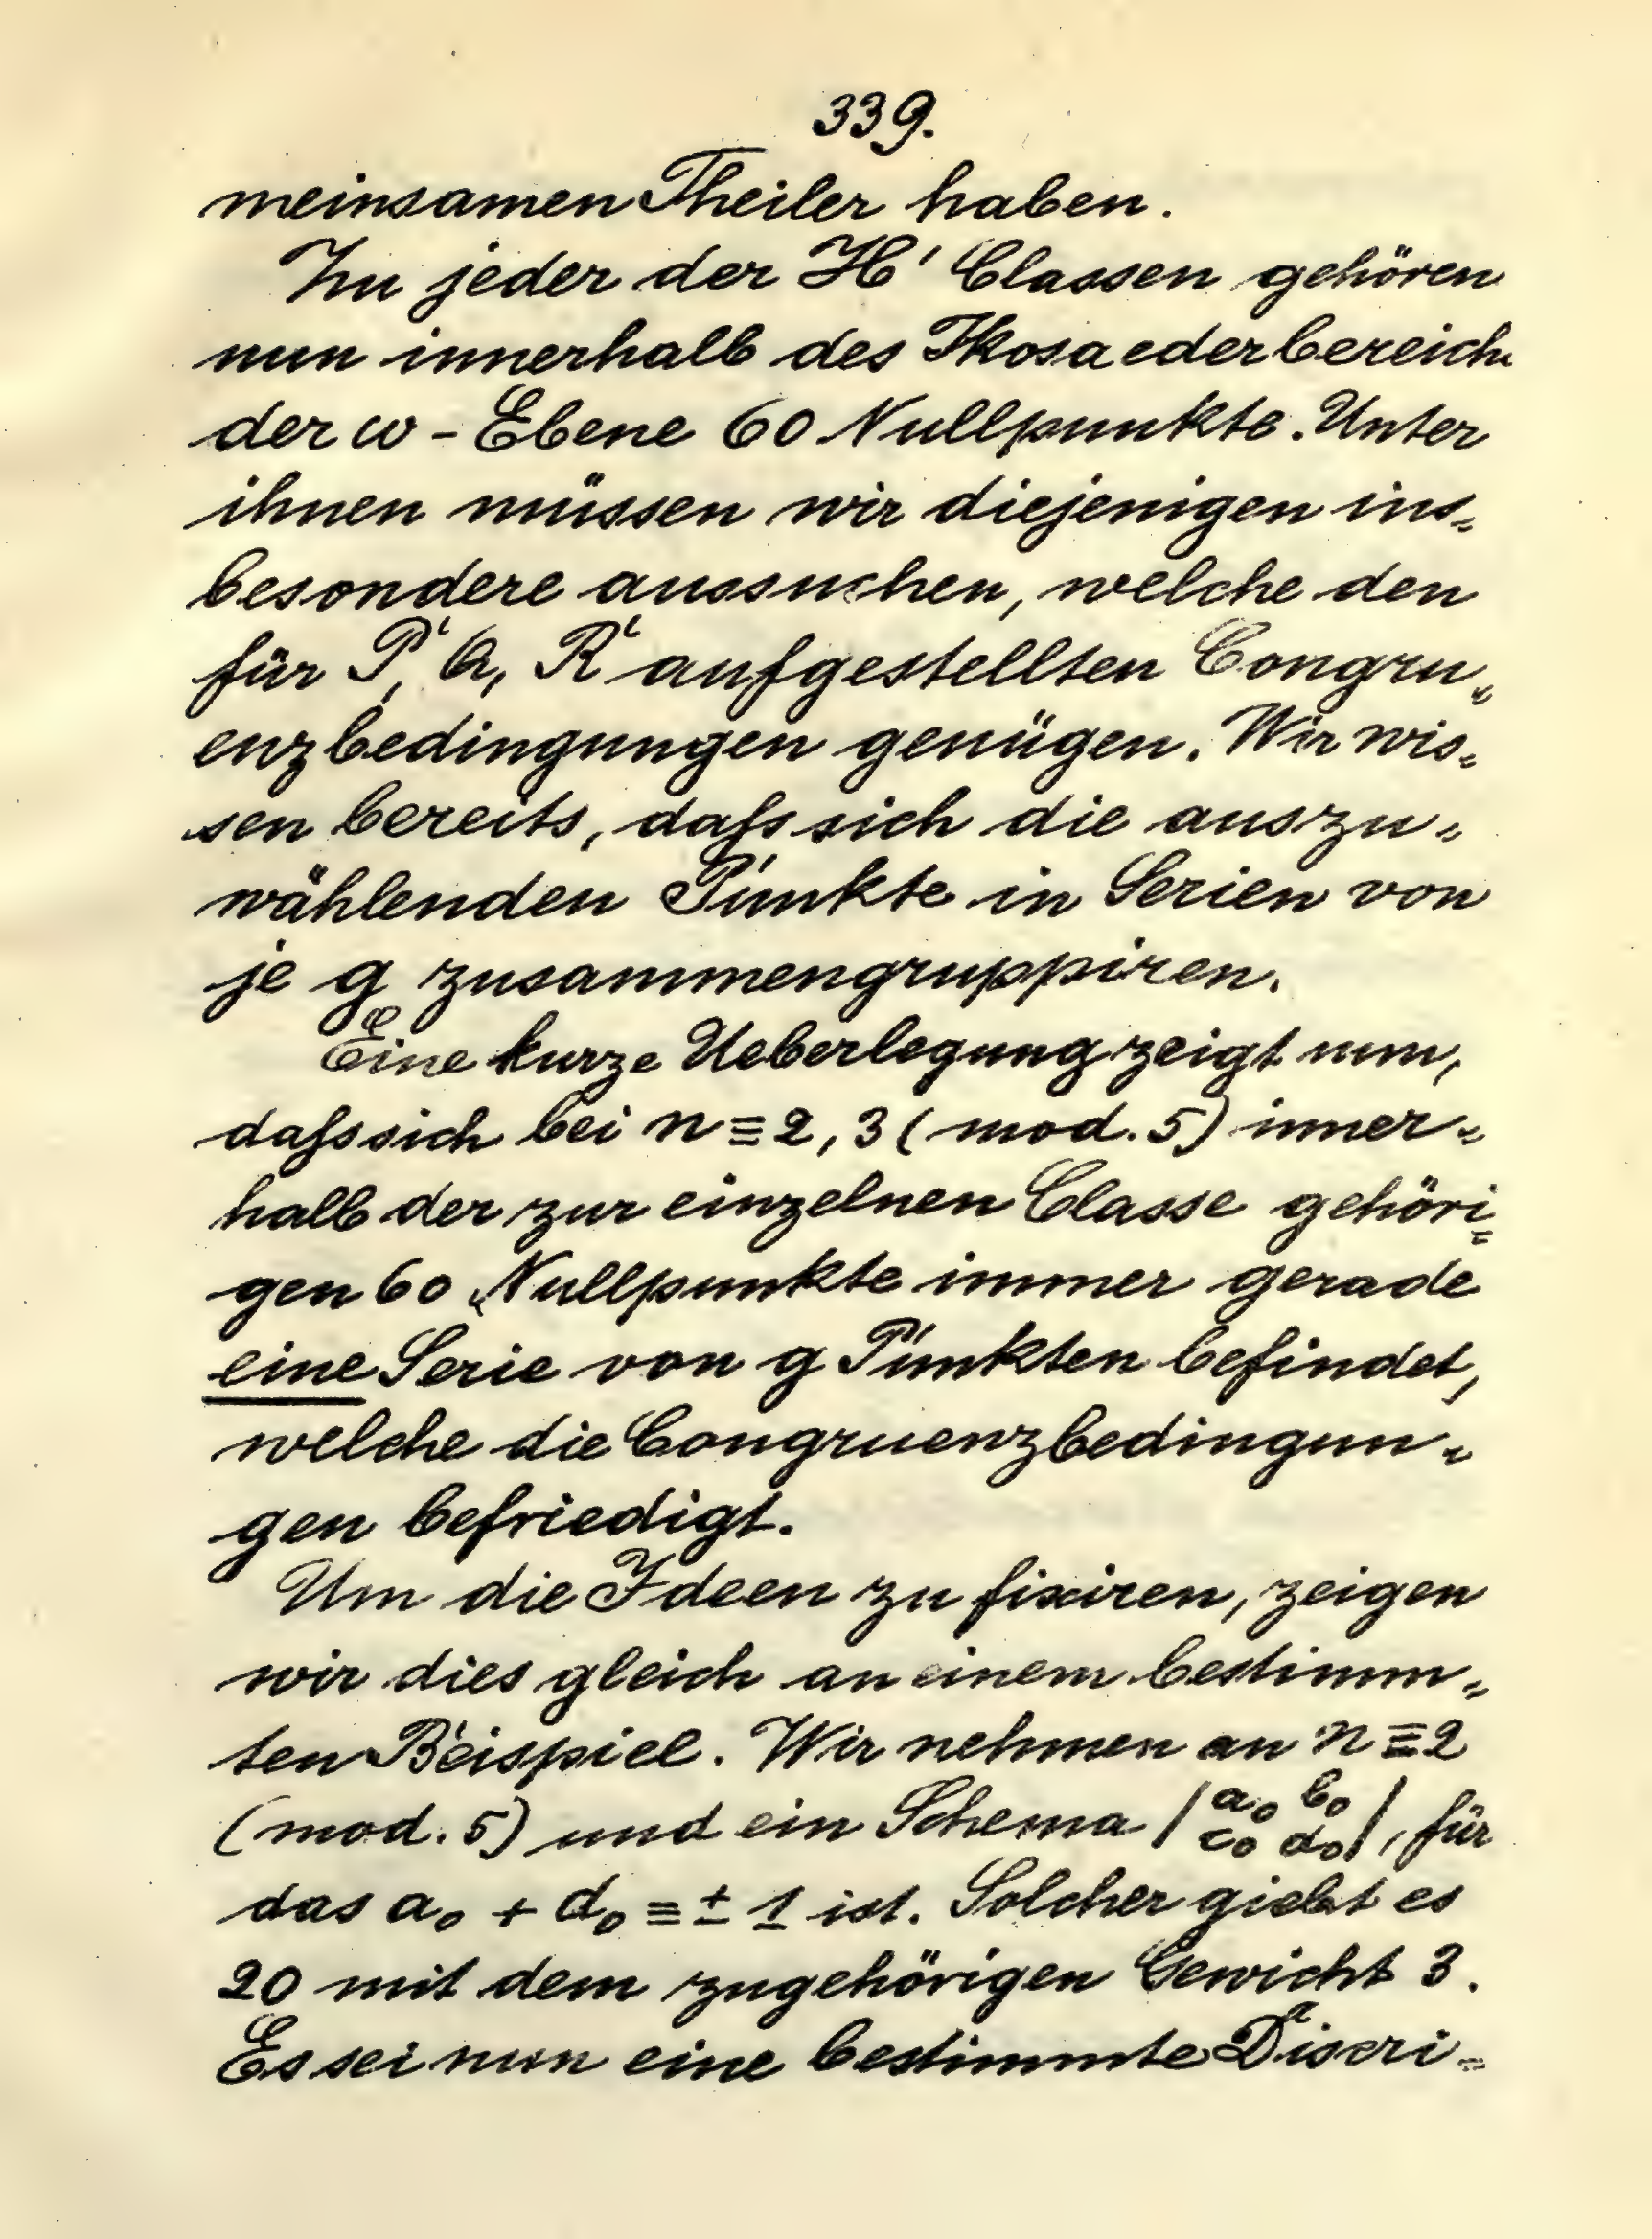 339.
meinsamen Theiler haben.
Zu jeder der H' Classen gehören
nun innerhalb des Ikosaederbereichs
der ω - Ebene 60 Nullpunkte. Unter
ihnen müssen wir diejenigen ins=
besondere aussuchen, welche den
für P', Q, R' aufgestellten Congru=
enzbedingungen genügen. Wir wis=
sen bereits, daſs sich die auszu=
wählenden Punkte in Serien von
je g zusammengruppiren.
Eine kurze Ueberlegung zeigt nun,
daſs sich bei n ≡ 2, 3 (mod. 5) inner=
halb der zur einzelnen Classe gehöri=
gen 60 Nullpunkte immer gerade
eine Serie von g Punkten befindet,
welche die Congruenzbedingun=
gen befriedigt.
Um die Ideen zu fixiren, zeigen
wir dies gleich an einem bestimm=
ten Beispiel. Wir nehmen an n ≡ 2
(mod. 5) und ein Schema |a₀ b₀ c₀ d₀|, für
das a₀ + d₀ ≡ ± 1 ist. Solcher giebt es
20 mit dem zugehörigen Gewicht 3.
Es sei nun eine bestimmte Discri=